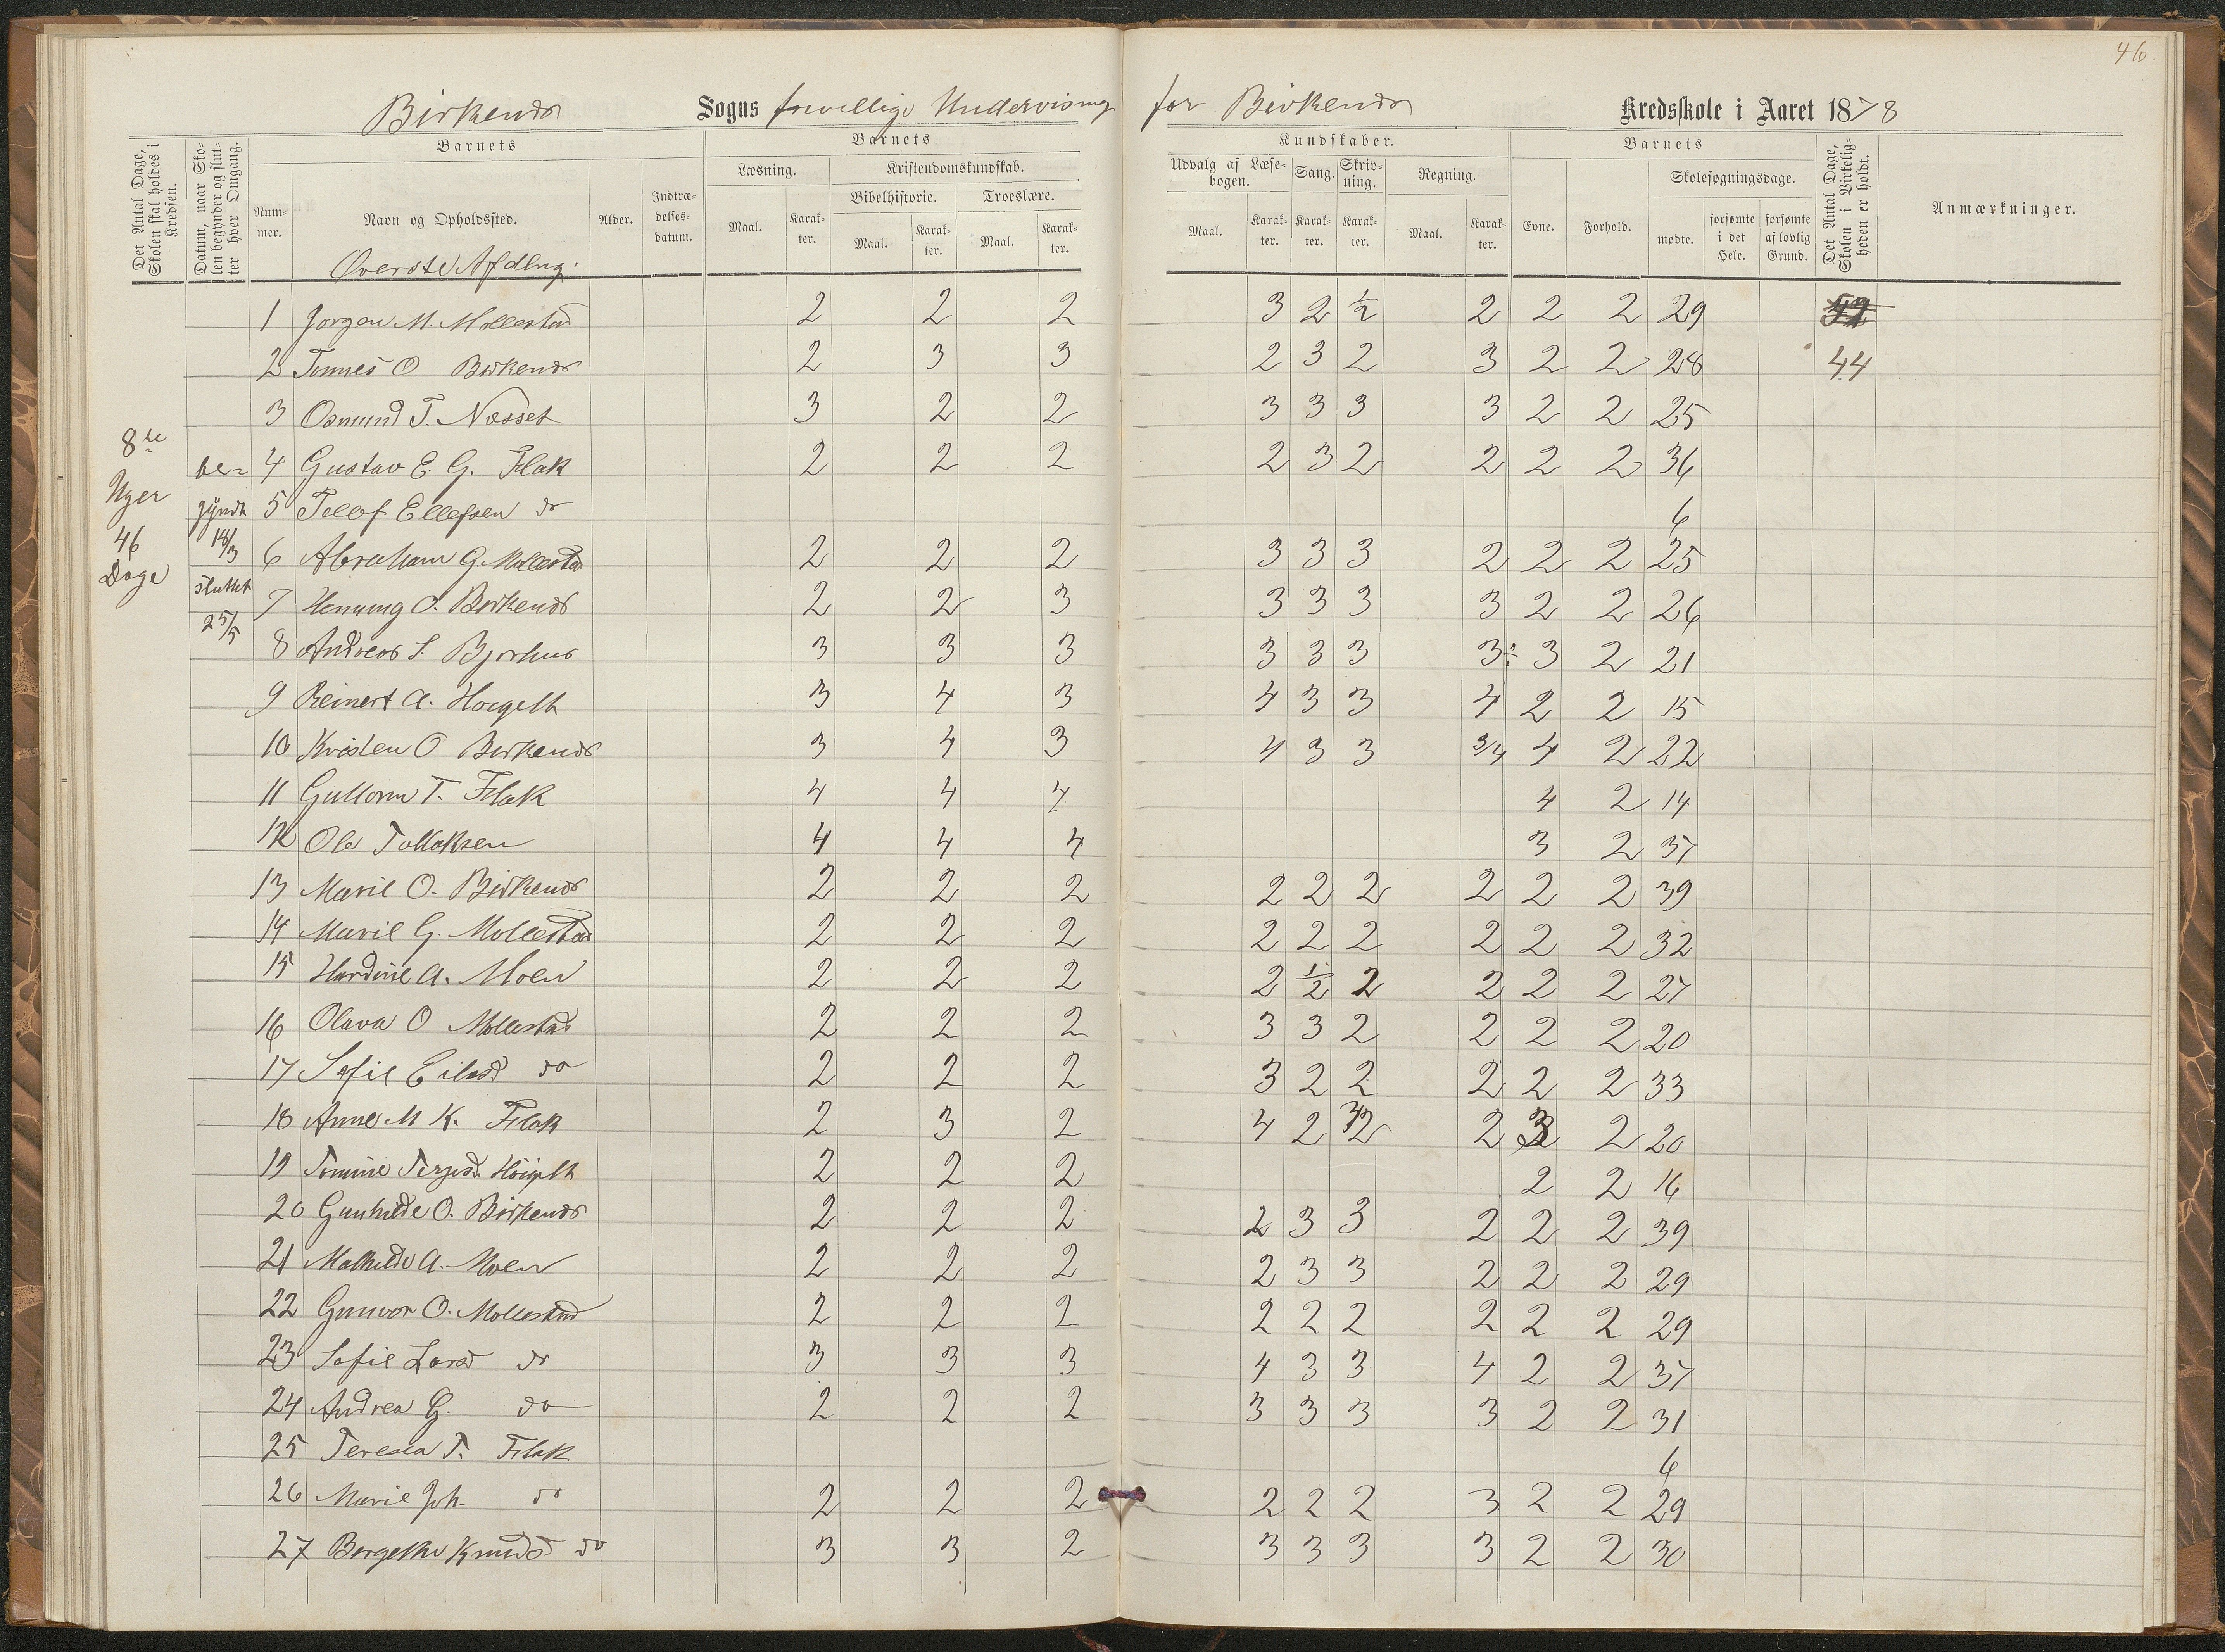 46.
Birkenes Sogns frivillige Undervisning for Birkenes Kredsskole i Aaret 1878
Det Antal Dage, Skolen skal holdes i Kredsen.
Datum, naar Skolen begynder og slutter hver Omgang.
Barnets
Nummer.
Navn og Opholdssted.
Alder.
Indtrædelsesdatum.
Barnets
Læsning.
Kristendomskundskab.
Bibelhistorie.
Troeslære.
Maal.
Karakter.
Maal.
Karakter.
Maal.
Karakter.
Kundskaber.
Udvalg af Læsebogen.
Sang.
Skrivning.
Regning.
Maal.
Karakter.
Karakter.
Karakter.
Maal.
Karakter.
Barnets
Evne.
Forhold.
Skolesøgningsdage.
mødte.
forsømte i det Hele.
forsømte af lovlig Grund.
Det Antal Dage, Skolen i Virkeligheden er holdt.
Anmærkninger.
Øverste Afdlng.
8te
Uger
46
Dage
be-
gyndt
18/3
sluttet
25/5
1 Jørgen M. Mollestad 2 2 2 3 2 1/2 2 2 2 29
2 Tønnes O Birkenes 2 3 3 2 3 2 3 2 2 28 44
3 Osmund T. Næsset 3 2 2 3 3 3 3 2 2 25
4 Gustav E. G. Flak 2 2 2 2 3 2 2 2 2 36
5 Tellef Ellefsen do 6
6 Abraham G. Mollestad 2 2 2 3 3 3 2 2 2 25
7 Henning O. Birkenes 2 2 3 3 3 3 3 2 2 26
8 Andreas S. Bjorhus 3 3 3 3 3 3 3÷ 3 2 21
9 Reinert A. Høigelt 3 4 3 4 3 3 4 2 2 15
10 Kristen O Birkenes 3 4 3 4 3 3 3/4 4 2 22
11 Guttorm T. Flak 4 4 4 4 2 14
12 Ole Tolloksen 4 4 4 3 2 37
13 Marie O. Birkenes 2 2 2 2 2 2 2 2 2 39
14 Marie G. Mollestad 2 2 2 2 2 2 2 2 2 32
15 Hardine A. Moen 2 2 2 2 1/2 2 2 2 2 27
16 Olava O Mollestad 2 2 2 3 3 2 2 2 2 20
17 Sofie Eilesd do 2 2 2 3 2 2 2 2 2 33
18 Anne M K. Flak 2 3 2 4 2 2 2 3 2 20
19 Tomine Terjesd. Höigelt 2 2 2 2 2 16
20 Gunhilde O. Birkenes 2 2 2 2 3 3 2 2 2 39
21 Mathilde A. Moen 2 2 2 2 3 3 2 2 2 29
22 Gunvor O. Mollestad 2 2 2 2 2 2 2 2 2 29
23 Sofie Larsd do 3 3 3 4 3 3 4 2 2 37
24 Andrea G. do 2 2 2 3 3 3 3 2 2 31
25 Teresia T. Flak 6
26 Marie Joh. do 2 2 2 2 2 2 3 2 2 29
27 Bergethe Knudsd do 3 3 2 3 3 3 3 2 2 30